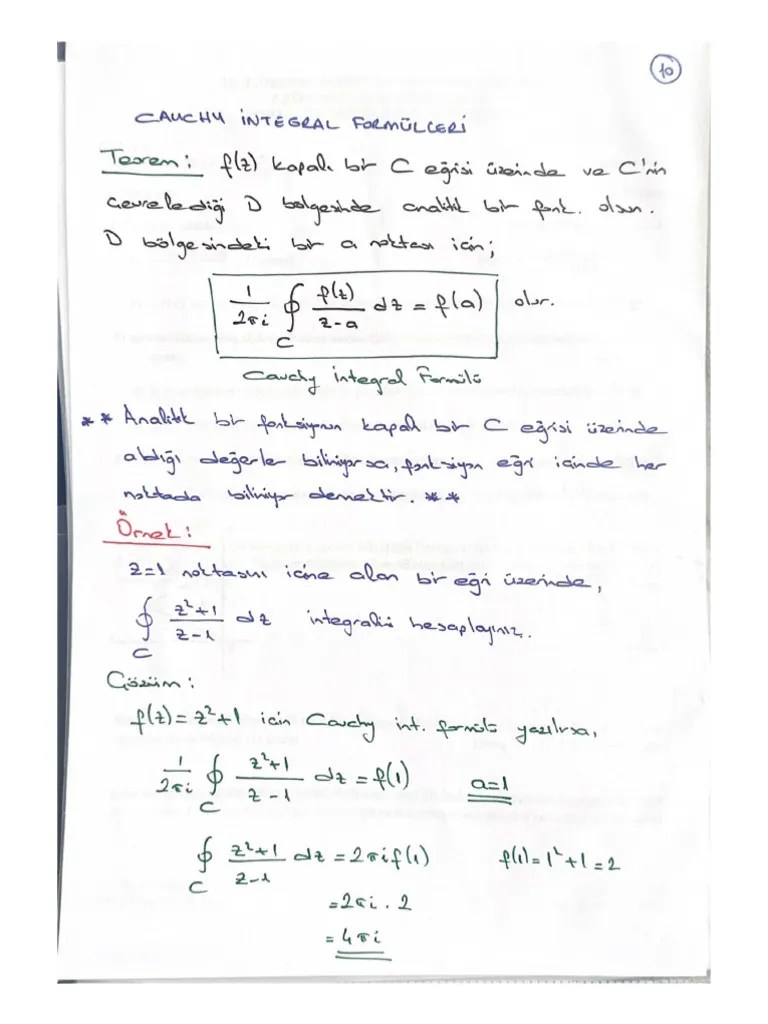 10
CAUCHY İNTEGRAL FORMÜLLERİ
Teorem: f(z) kapalı bir C eğrisi üzerinde ve C'nin
çevrelediği D bölgesinde analitik bir fonk. olsun.
D bölgesindeki bir a noktası için;
1/2πi ∮_C f(z)/z-a dz = f(a) olur.
Cauchy İntegral Formülü
** Analitik bir fonksiyonun kapalı bir C eğrisi üzerinde
aldığı değerler biliniyorsa, fonksiyon eğri içinde her
noktada biliniyor demektir. **
Örnek:
z=1 noktasını içine alan bir eğri üzerinde,
∮_C z²+1/z-1 dz integralini hesaplayınız.
Çözüm:
f(z)=z²+1 için Cauchy int. formülü yazılırsa,
1/2πi ∮_C z²+1/z-1 dz = f(1) a=1
∮_C z²+1/z-1 dz = 2πif(1) f(1)=1²+1=2
=2πi.2
=4πi